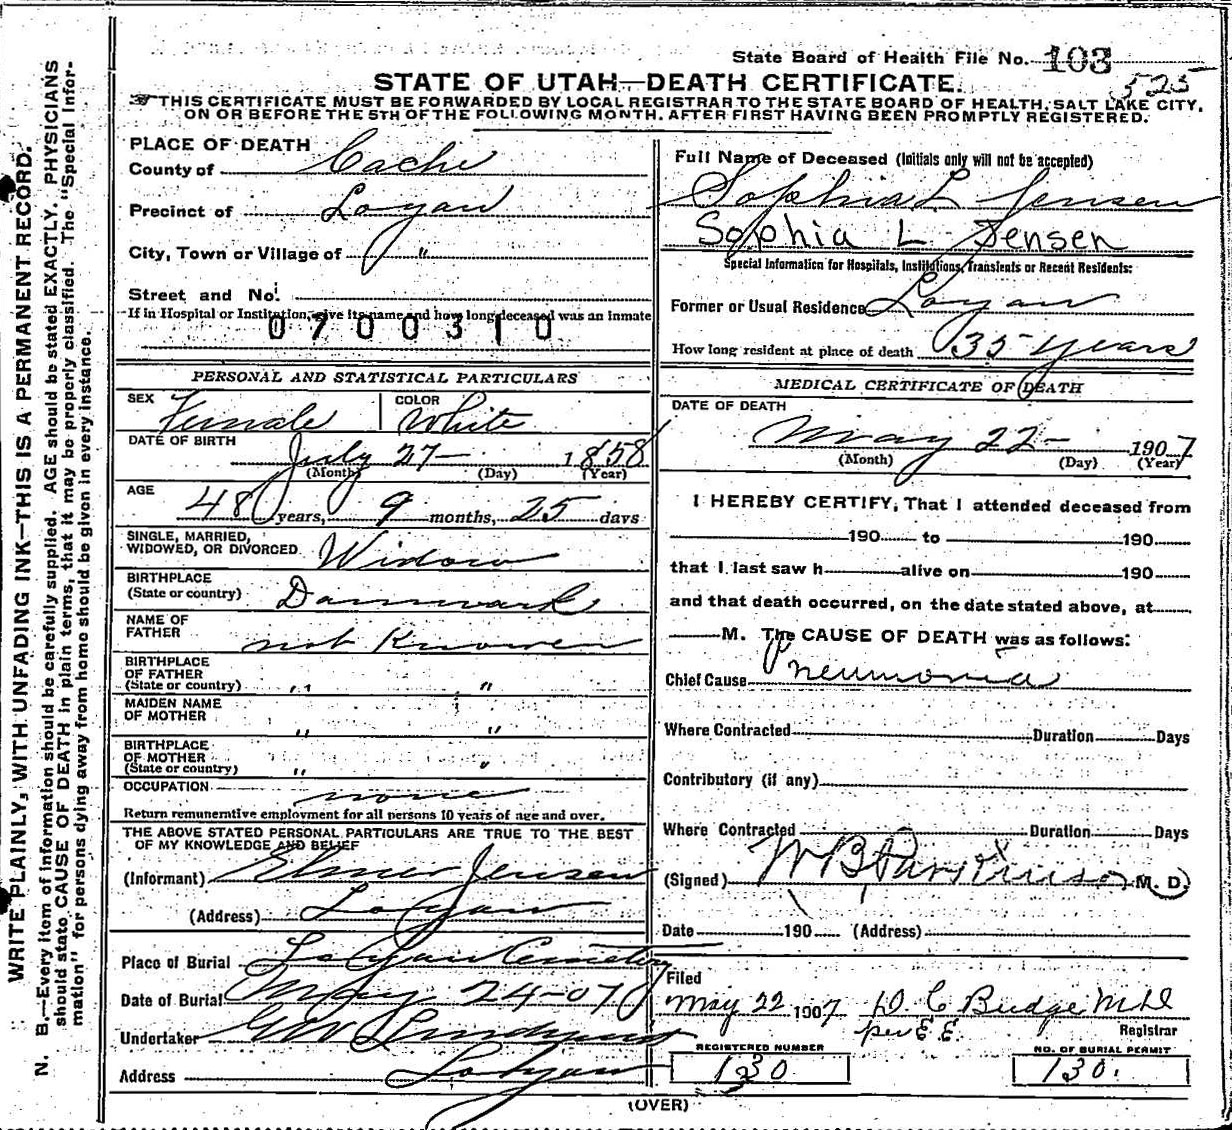 State Board of Health File No. 103
525
STATE OF UTAH—DEATH CERTIFICATE.
THIS CERTIFICATE MUST BE FORWARDED BY LOCAL REGISTRAR TO THE STATE BOARD OF HEALTH, SALT LAKE CITY,
ON OR BEFORE THE 5TH OF THE FOLLOWING MONTH. AFTER FIRST HAVING BEEN PROMPTLY REGISTERED.
WRITE PLAINLY, WITH UNFADING INK—THIS IS A PERMANENT RECORD.
N. B.—Every item of information should be carefully supplied. AGE should be stated EXACTLY. PHYSICIANS
should state CAUSE OF DEATH in plain terms, that it may be properly classified. The "Special Infor-
mation" for persons dying away from home should be given in every instance.
PLACE OF DEATH
County of Cache
Precinct of Logan
City, Town or Village of "
Street and No.
If in Hospital or Institution, give its name and how long deceased was an inmate
0700310
PERSONAL AND STATISTICAL PARTICULARS
SEX Female COLOR White
DATE OF BIRTH
July 27- 1858
(Month) (Day) (Year)
AGE
48 years, 9 months, 25 days
SINGLE, MARRIED,
WIDOWED, OR DIVORCED Widow
BIRTHPLACE
(State or country) Danmark
NAME OF
FATHER not Known
BIRTHPLACE
OF FATHER
(State or country) " "
MAIDEN NAME
OF MOTHER " "
BIRTHPLACE
OF MOTHER
(State or country) " "
OCCUPATION none
Return remunerative employment for all persons 10 years of age and over.
THE ABOVE STATED PERSONAL PARTICULARS ARE TRUE TO THE BEST
OF MY KNOWLEDGE AND BELIEF
(Informant) Elmer Jensen
(Address) Logan
Place of Burial Logan Cemetery
Date of Burial May 24-07
Undertaker
Address Logan
Full Name of Deceased (Initials only will not be accepted)
Sophia L Jensen
Sophia L Jensen
Special Information for Hospitals, Institutions, Transients or Recent Residents:
Former or Usual Residence Logan
How long resident at place of death 35 years
MEDICAL CERTIFICATE OF DEATH
DATE OF DEATH
May 22- 1907
(Month) (Day) (Year)
I HEREBY CERTIFY, That I attended deceased from
190 to 190
that I last saw h alive on 190
and that death occurred, on the date stated above, at
M. The CAUSE OF DEATH was as follows:
Chief Cause Pneumonia
Where Contracted Duration Days
Contributory (if any)
Where Contracted Duration Days
(Signed) W B Parkinson M. D.
Date 190 (Address)
Filed
May 22 1907 D C Budge MD
per E.E. Registrar
REGISTERED NUMBER
130
NO. OF BURIAL PERMIT
130.
(OVER)